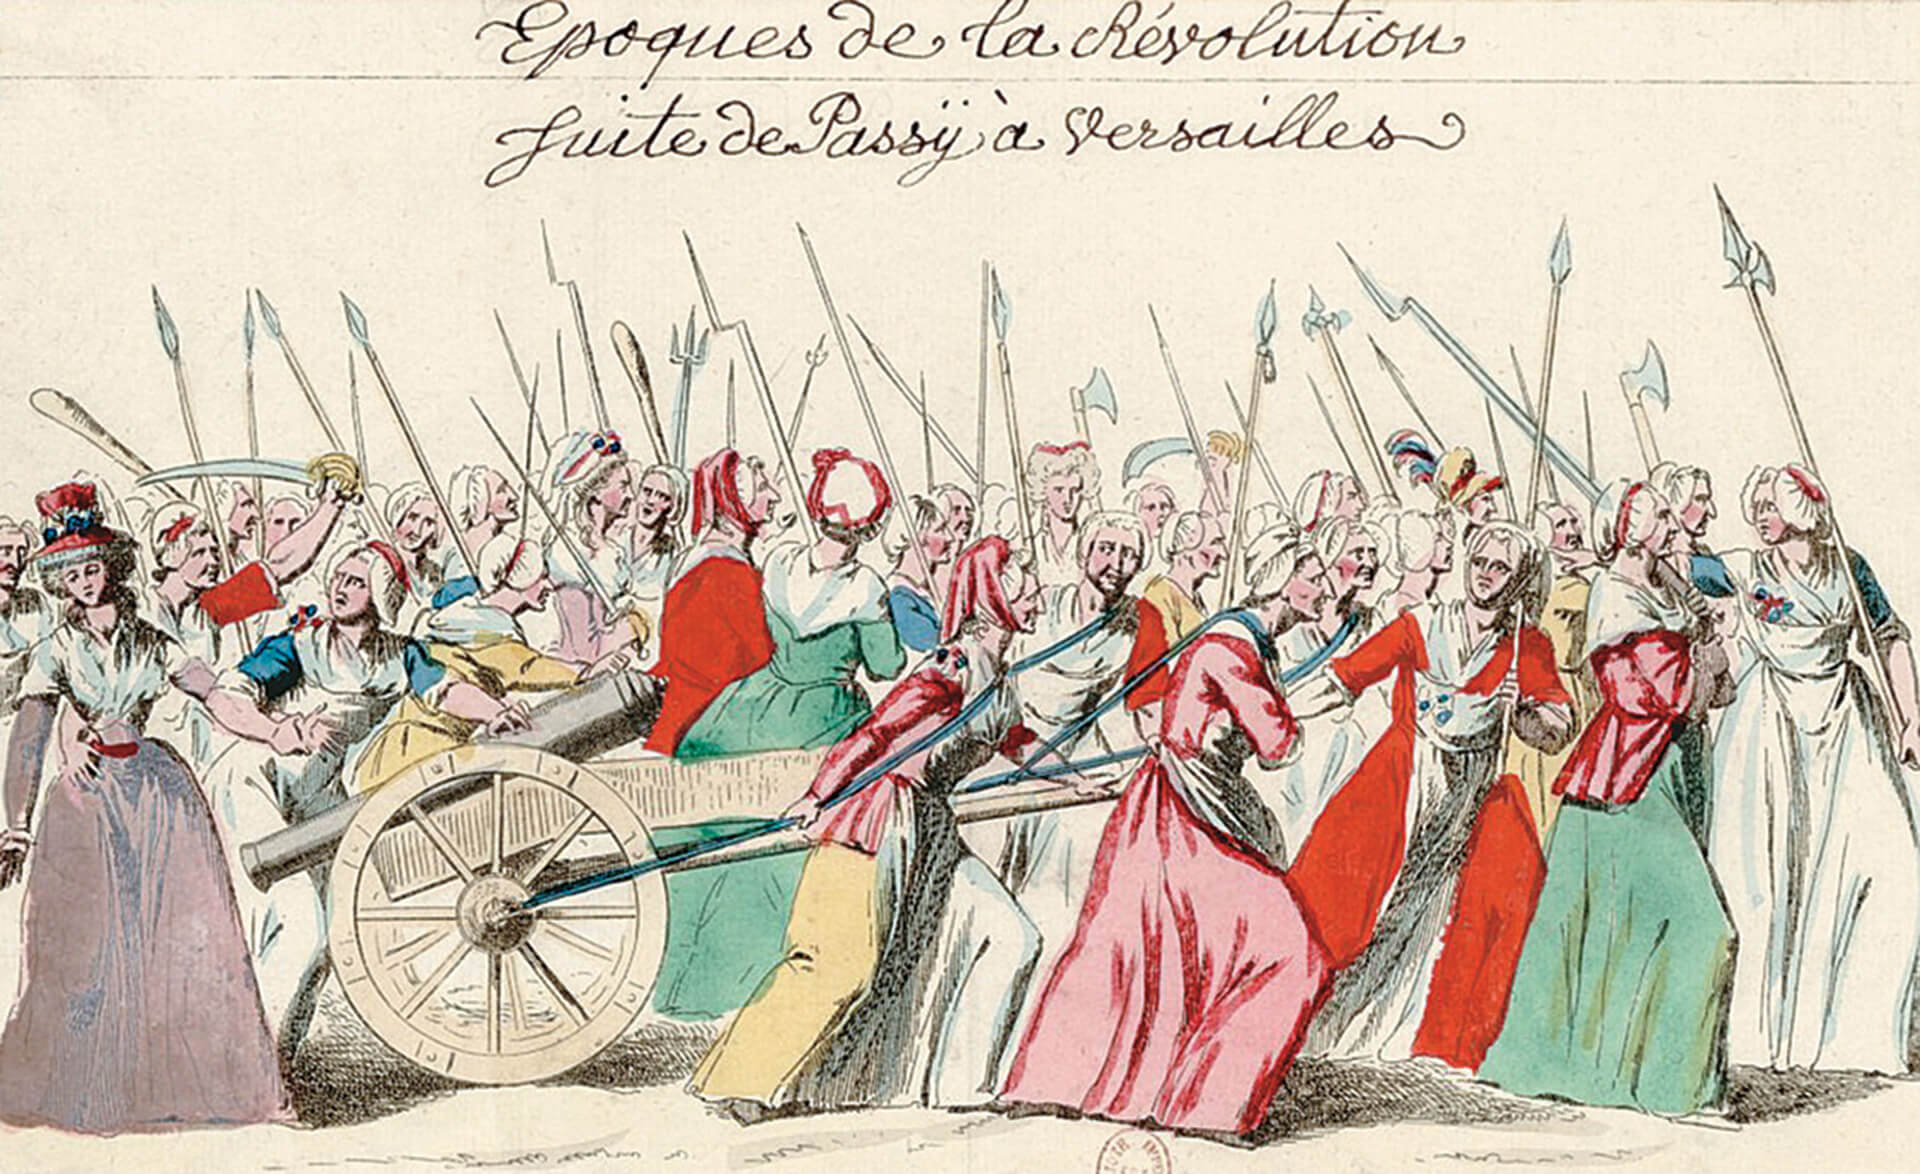 Epoques de la Révolution
suite de Passÿ à Versailles